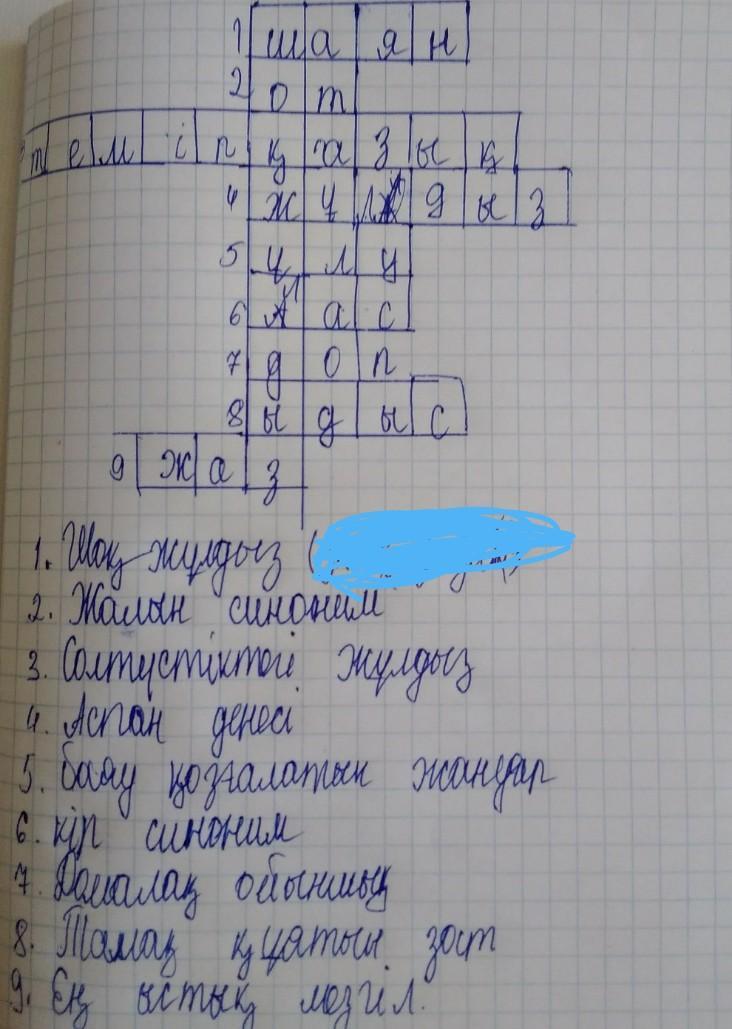 1 шаян
2 от
3 темірқазық
4 жұлдыз
5 ұлу
6 лас
7 доп
8 ыдыс
9 жаз
1. Шоқ жұлдыз (
2. Жалын синоним
3. Солтүстіктегі жұлдыз
4. Аспан денесі
5. баяу қозғалатын жандар
6. кір синоним
7. Домалақ ойыншық
8. Тамақ құятын зат
9. Ең ыстық мезгіл.